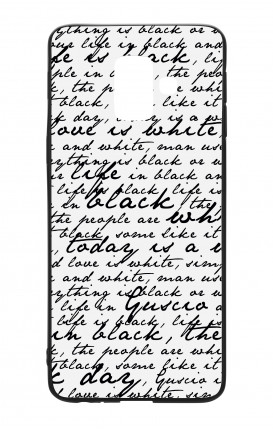 ything is black or w
our life in black and
fe is black, li
ple in b the peo
k, the p e whi
black, like it
k day, y is a w
love is white,
and white, man us
ything is black or w
r life in black an
life black, life is
in black, the
the people are wh
t black, some like it
, today is a w
d love is white, sim
and white, man us
ything is black or w
life in Guscio a
life is black, life is
in black, the
k, the people are whi
black, some like it
k day, Guscio i
love is white, sim